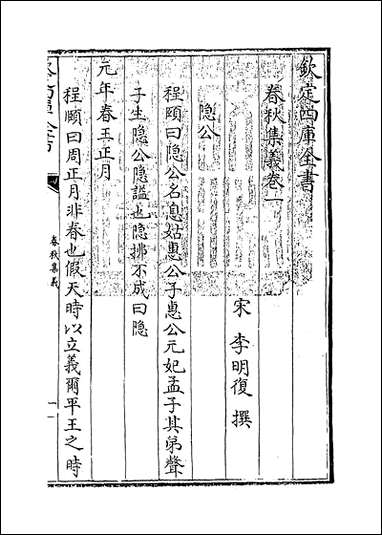 欽定四庫全書
春秋集義卷一
宋 李明復 撰
隐公
程頤曰隐公名息姑惠公子惠公元妃孟子其弟聲
子生隐公隐謚也隐拂不成曰隐
元年春王正月
程頤曰周正月非春也假天時以立義爾平王之時
春秋集義
一